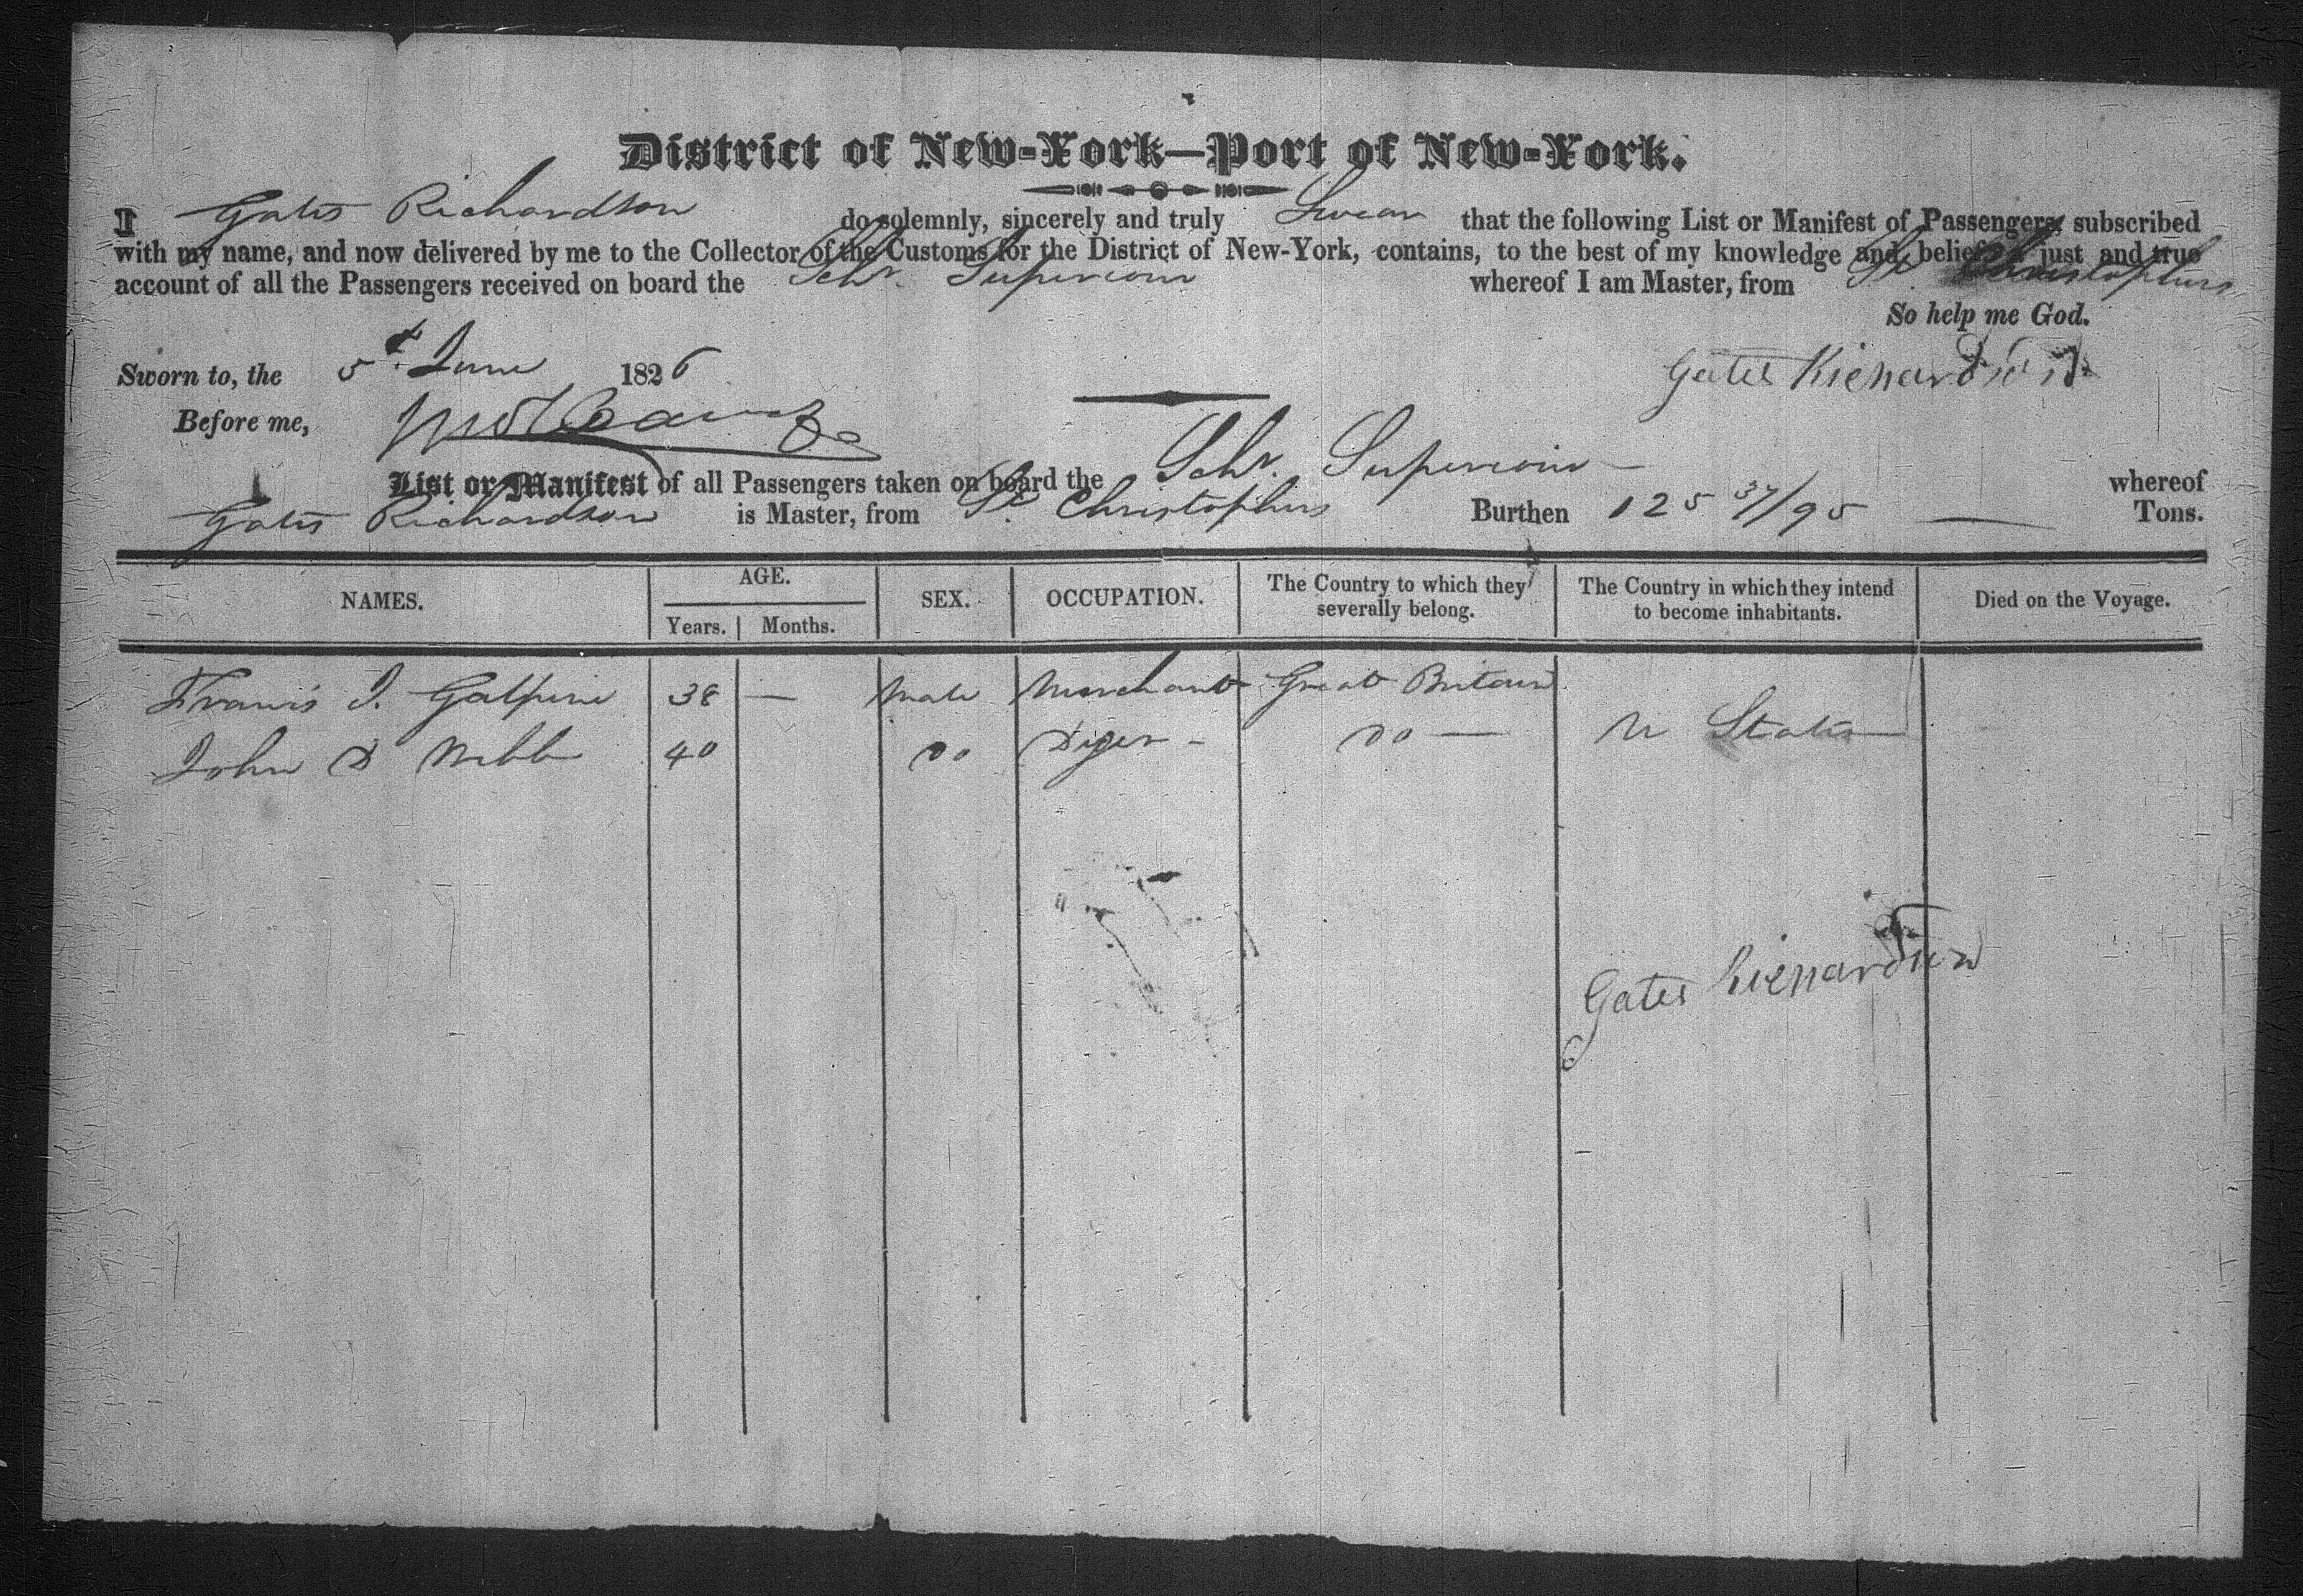 District of New-York—Port of New-York.
I Gates Richardson do solemnly, sincerely and truly Swear that the following List or Manifest of Passengers, subscribed
with my name, and now delivered by me to the Collector of the Customs for the District of New-York, contains, to the best of my knowledge and belief a just and true
account of all the Passengers received on board the Schr. Superiour whereof I am Master, from St Christophers
So help me God.
Sworn to, the 5t June 1826 Gates Richardson
Before me,
List or Manifest of all Passengers taken on board the Schr. Superiour — whereof
Gates Richardson is Master, from St Christophers Burthen 125 37/95 — Tons.
NAMES. AGE. Years. Months. SEX. OCCUPATION. The Country to which they severally belong. The Country in which they intend to become inhabitants. Died on the Voyage.
Francis J. Galpine 38 — Male Merchant Great Britain
John D Webb 40 Do Do — U States
Gates Richardson